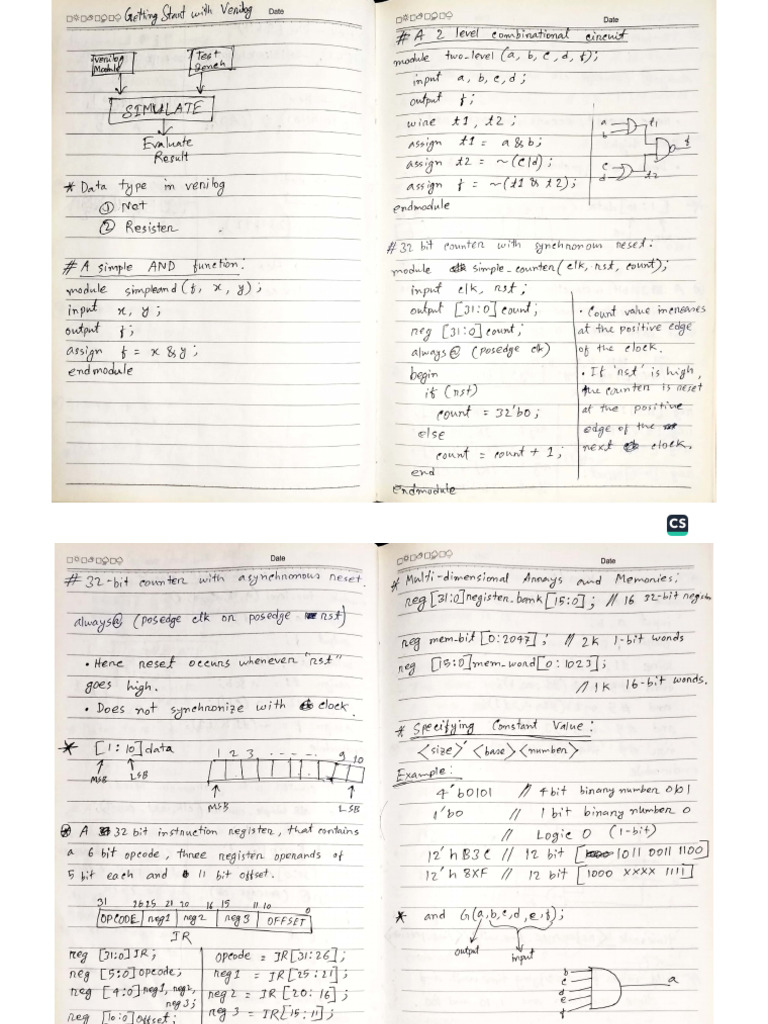 Getting Start with Verilog
Date
verilog
Module
Test
Bench
SIMULATE
Evaluate
Result
* Data type in verilog
① Net
② Resister
# A simple AND function:
module simpleand (f, x, y);
input x, y;
output f;
assign f = x & y;
endmodule
Date
# A 2 level combinational circuit
module two-level (a, b, c, d, f);
input a, b, c, d;
output f;
wire t1, t2;
assign t1 = a & b;
assign t2 = ~(c|d);
assign f = ~(t1 & t2);
endmodule
a
b
t1
f
c
d
t2
# 32 bit counter with synchronous reset:
module simple_counter(clk, rst, count);
input clk, rst;
output [31:0] count;
reg [31:0] count;
always@ (posedge clk)
begin
if (rst)
count = 32'b0;
else
count = count + 1;
end
endmodule
• Count value increases
at the positive edge
of the clock.
• If 'rst' is high,
the counter is reset
at the positive
edge of the
next clock.
CS
Date
# 32-bit counter with asynchronous reset.
always@ (posedge clk or posedge rst)
• Here reset occurs whenever "rst"
goes high.
• Does not synchronize with clock.
* [1:10] data
MSB LSB
1 2 3 - - - - - 9 10
MSB LSB
* A 32 bit instruction register, that contains
a 6 bit opcode, three register operands of
5 bit each and 11 bit offset.
31 26 25 21 20 16 15 11 10 0
OPCODE reg1 reg2 reg3 OFFSET
IR
reg [31:0] IR;
reg [5:0] opcode;
reg [4:0] reg1, reg2,
reg3;
reg [10:0] offset;
opcode = IR[31:26];
reg1 = IR[25:21];
reg2 = IR[20:16];
reg3 = IR[15:11];
Date
* Multi-dimensional Arrays and Memories:
reg [31:0] register_bank [15:0]; // 16 32-bit register
reg mem-bit [0:2047]; // 2k 1-bit words
reg [15:0] mem_word[0:1023];
// 1k 16-bit words.
# Specifying Constant Value:
<size>' <base> <number>
Example:
4'b0101 // 4 bit binary number 0101
1'b0 // 1 bit binary number 0
// Logic 0 (1-bit)
12'hB3C // 12 bit [1011 0011 1100]
12'h8XF // 12 bit [1000 xxxx 1111]
* and G(a,b,c,d,e,f);
output input
b
c
d
e
f
a